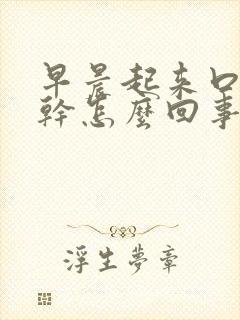 早晨起来口
幹怎麼回事
浮生夢章